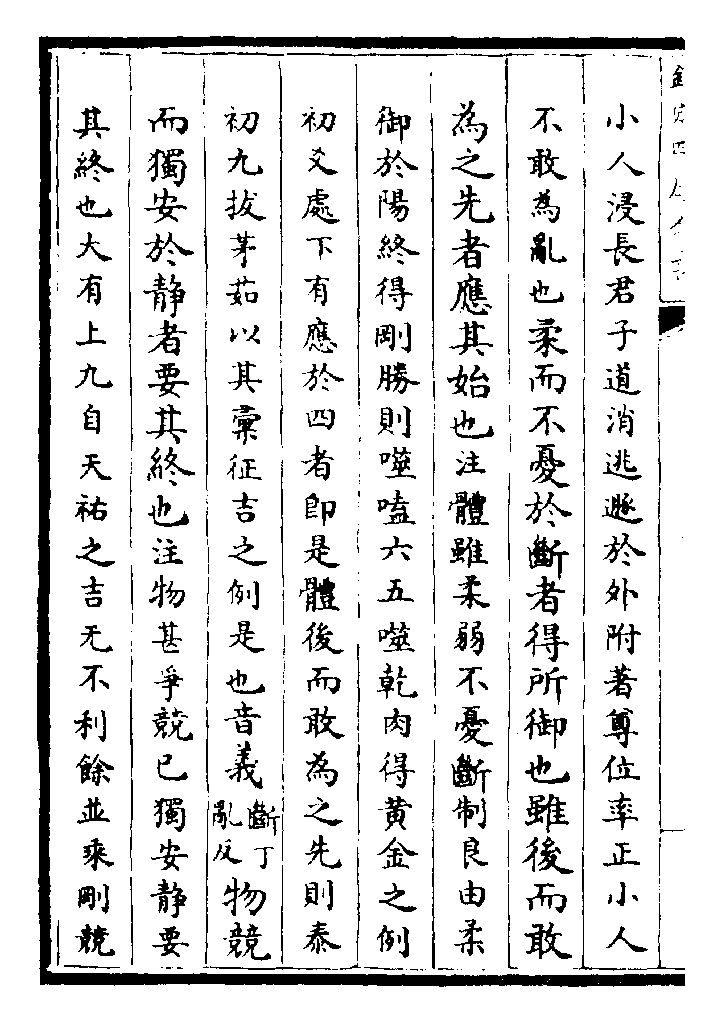 小人浸長君子道消逃遯於外附著尊位率正小人
不敢為亂也柔而不憂於斷者得所御也雖後而敢
為之先者應其始也注體雖柔弱不憂斷制良由柔
御於陽終得剛勝則噬嗑六五噬乾肉得黃金之例
初爻處下有應於四者即是體後而敢為之先則泰
初九拔茅茹以其彙征吉之例是也音義斷丁亂反物競
而獨安於静者要其終也注物甚爭競已獨安静要
其終也大有上九自天祐之吉无不利餘並乘剛競